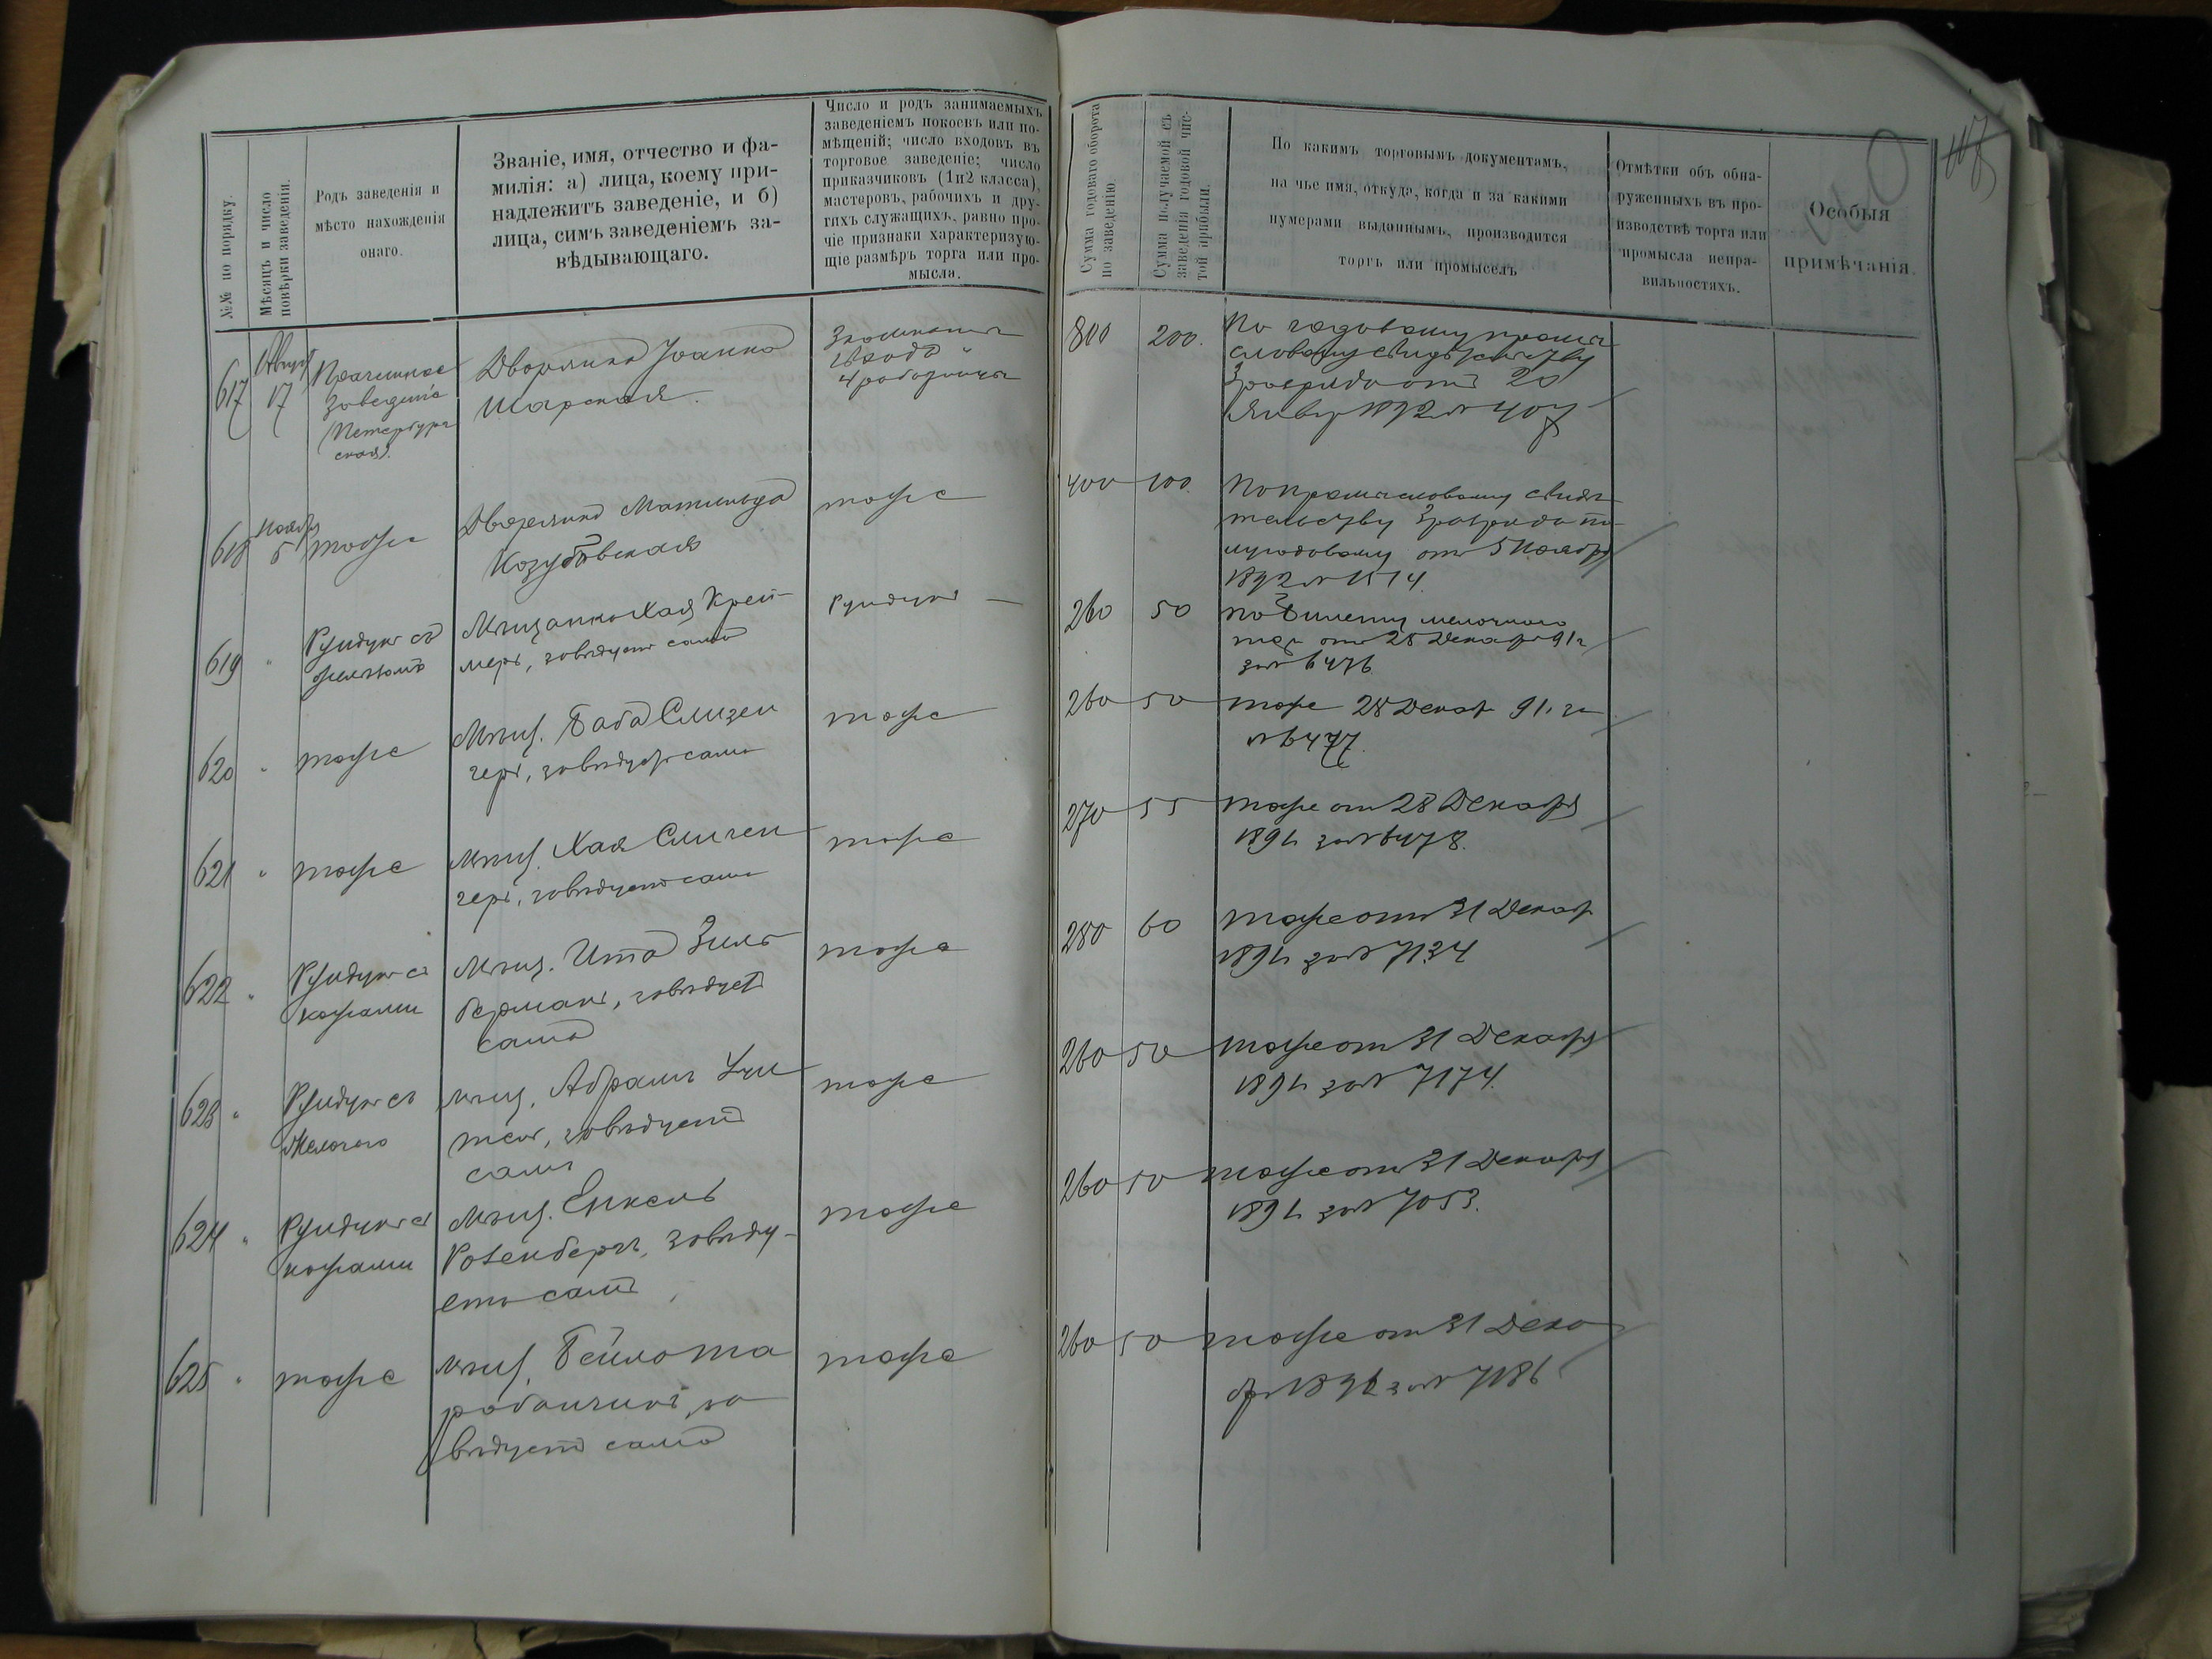 №№ по порядку.
Мѣсяцъ и число
повѣрки заведенія.
Родъ заведенія и
мѣсто нахожденія
онаго.
Званіе, имя, отчество и фа-
милія: а) лица, коему при-
надлежитъ заведеніе, и б)
лица, симъ заведеніемъ за-
вѣдывающаго.
Число и родъ занимаемыхъ
заведеніемъ покоевъ или по-
мѣщеній; число входовъ въ
торговое заведеніе; число
приказчиковъ (1 и 2 класса),
мастеровъ, рабочихъ и дру-
гихъ служащихъ, равно про-
чіе признаки характеризую-
щіе размѣръ торга или про-
мысла.
Сумма годоваго оборота
по заведенію.
Сумма получаемой съ
заведенія годовой чис-
той прибыли.
По какимъ торговымъ документамъ,
на чье имя, откуда, когда и за какими
нумерами выданнымъ, производится
торгъ или промыселъ
Отмѣтки объ обна-
руженныхъ въ про-
изводствѣ торга или
промысла непра-
вильностяхъ.
Особыя
примѣчанія.
617
17
Прачешное
заведеніе
Петербург
ская)
Дворянка Іоанна
Шарская.
4 работницы
800 200.
По годовому промы
словому свидѣтельству
3 разряда отъ 20
Январ 1892 № 407
618
Ноября
5
тоже
Дворянка Матильда
Козубовская
тоже
400 100
По промысловому свидѣ
тельству 3 разряда по
лугодовому отъ 5 Ноября
1892 № 1514.
619 "
Рундукъ съ
Мѣщанка Хая Крей-
меръ, завѣдуетъ сама
Рундукъ —
260 50
по билету мелочного
тор отъ 28 Декабр 91 г
за № 6476
620 "
тоже
Мѣщ. Баба Слизен
геръ, завѣдует сама
тоже
260 50
тоже 28 Декаб 91 г. за
№ 6477.
621 "
тоже
Мѣщ. Хая Слизен
геръ, завѣдуетъ сама
тоже
270 55
тоже от 28 Декабря
1891 за № 6478.
622 "
Рундукъ съ
кожами
Мѣщ. Ита Зиль
берманъ, завѣдуетъ
сама
тоже
280 60
тоже отъ 31 Декаб
1891 за № 7134
623 "
Рундукъ съ
Мѣщ. Абрамъ Учи
тель, завѣдуетъ
самъ
тоже
260 50
тоже от 31 Декабря
1891 за № 7174.
624 "
Рундукъ съ
кожами
Мѣщ. Енкель
Розенбергъ, завѣду-
етъ самъ
тоже
260 50
тоже от 31 Декабря
1891 за № 7053.
625 "
тоже
Мѣщ. Бейла
за
вѣдуетъ сама
тоже
260 50
тоже от 31 Дека
бря 1891 за № 7186